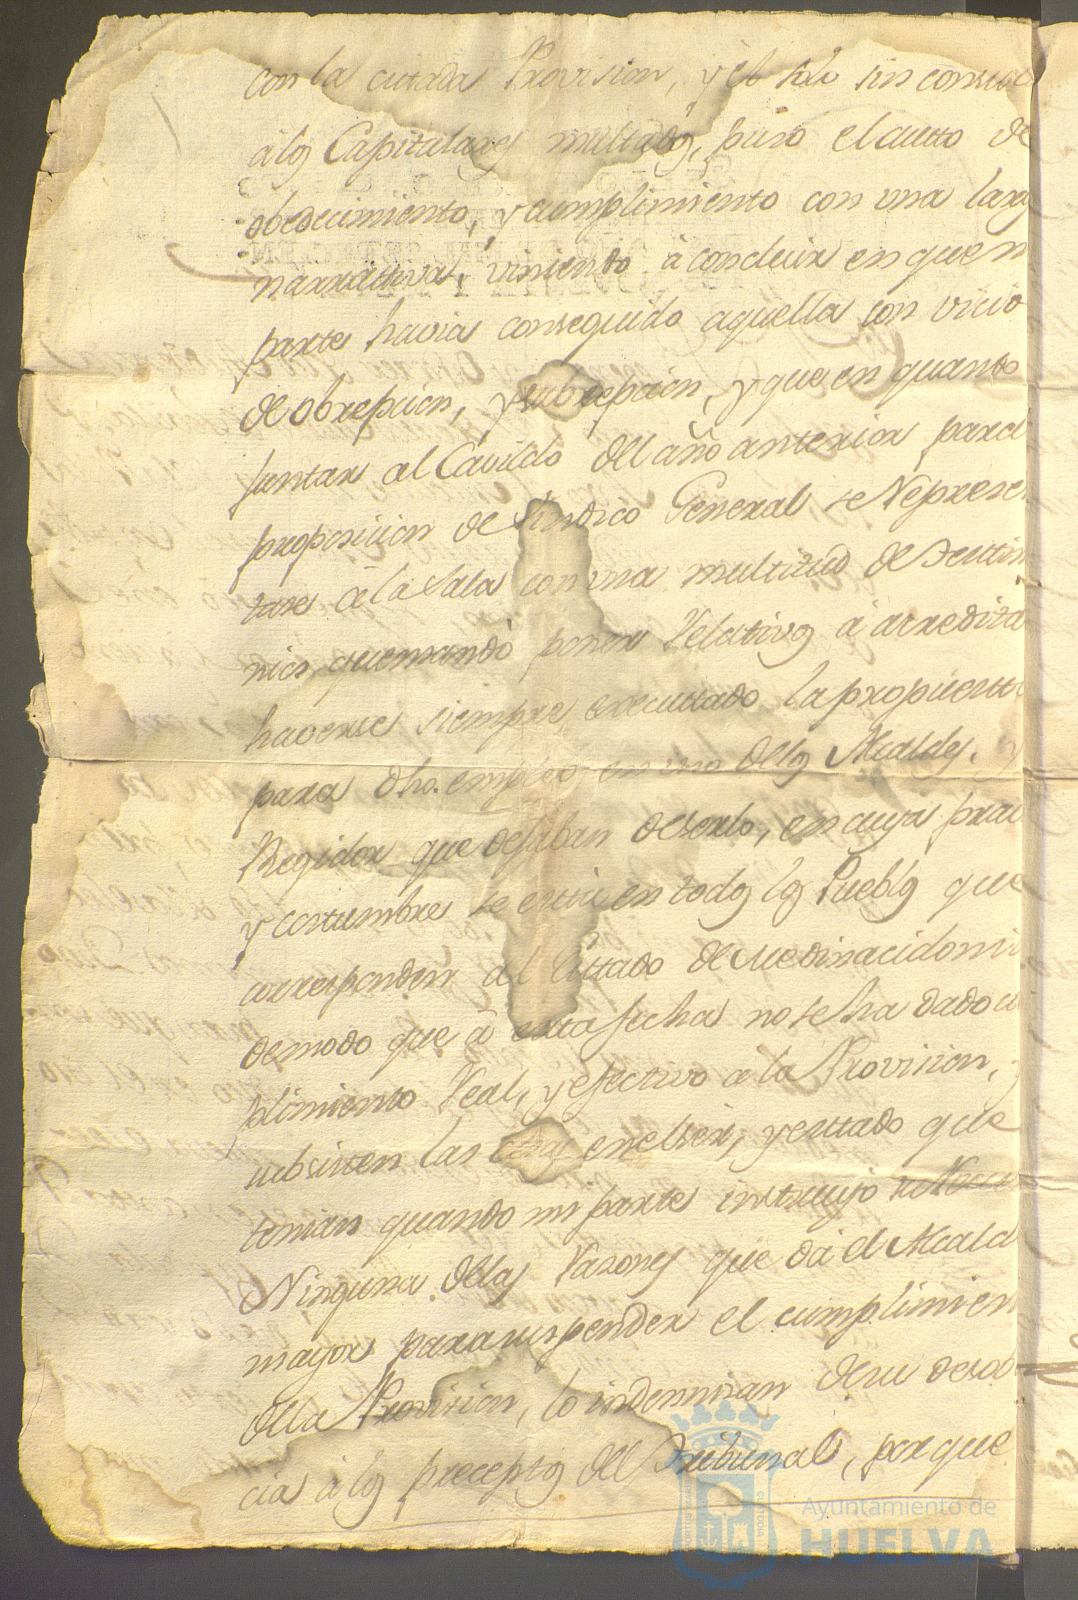 con la citada Provision, y el solo sin consul
à los Capitulares multados, puso el auto de
obedecimiento, y cumplimiento con una larga
narrativa, viniendo à concluir en que mi
parte havia conseguido aquella con vicio
de obrepcion, y subrepcion, y que en quanto
juntar al Cavildo del año anterior para
proposicion de Sindico General se Represen
tare à la Sala con una multitud de Testim
nios, que mandò poner Relativos à acredita
haverse siempre executado la propuesta
para dho. empleo en uno de los Alcaldes, y
Regidor que dejaban de serlo, en cuya prac
y costumbre se està en todos los Pueblos que
corresponden al Estado de Medinacidoni
de modo que à esta fecha no se ha dado cu
plimiento Real, y efectivo a la Provision, y
subsisten las cosas en el ser, y estado que
tenian quando mi parte instruyò su Recu
Ninguna de las Razones que dà el Alcald
mayor para suspender el cumplimien
de la Provision, lo indemnizan de su desob
cia à los preceptos del Tribunal, porque
Ayuntamiento de
HUELVA